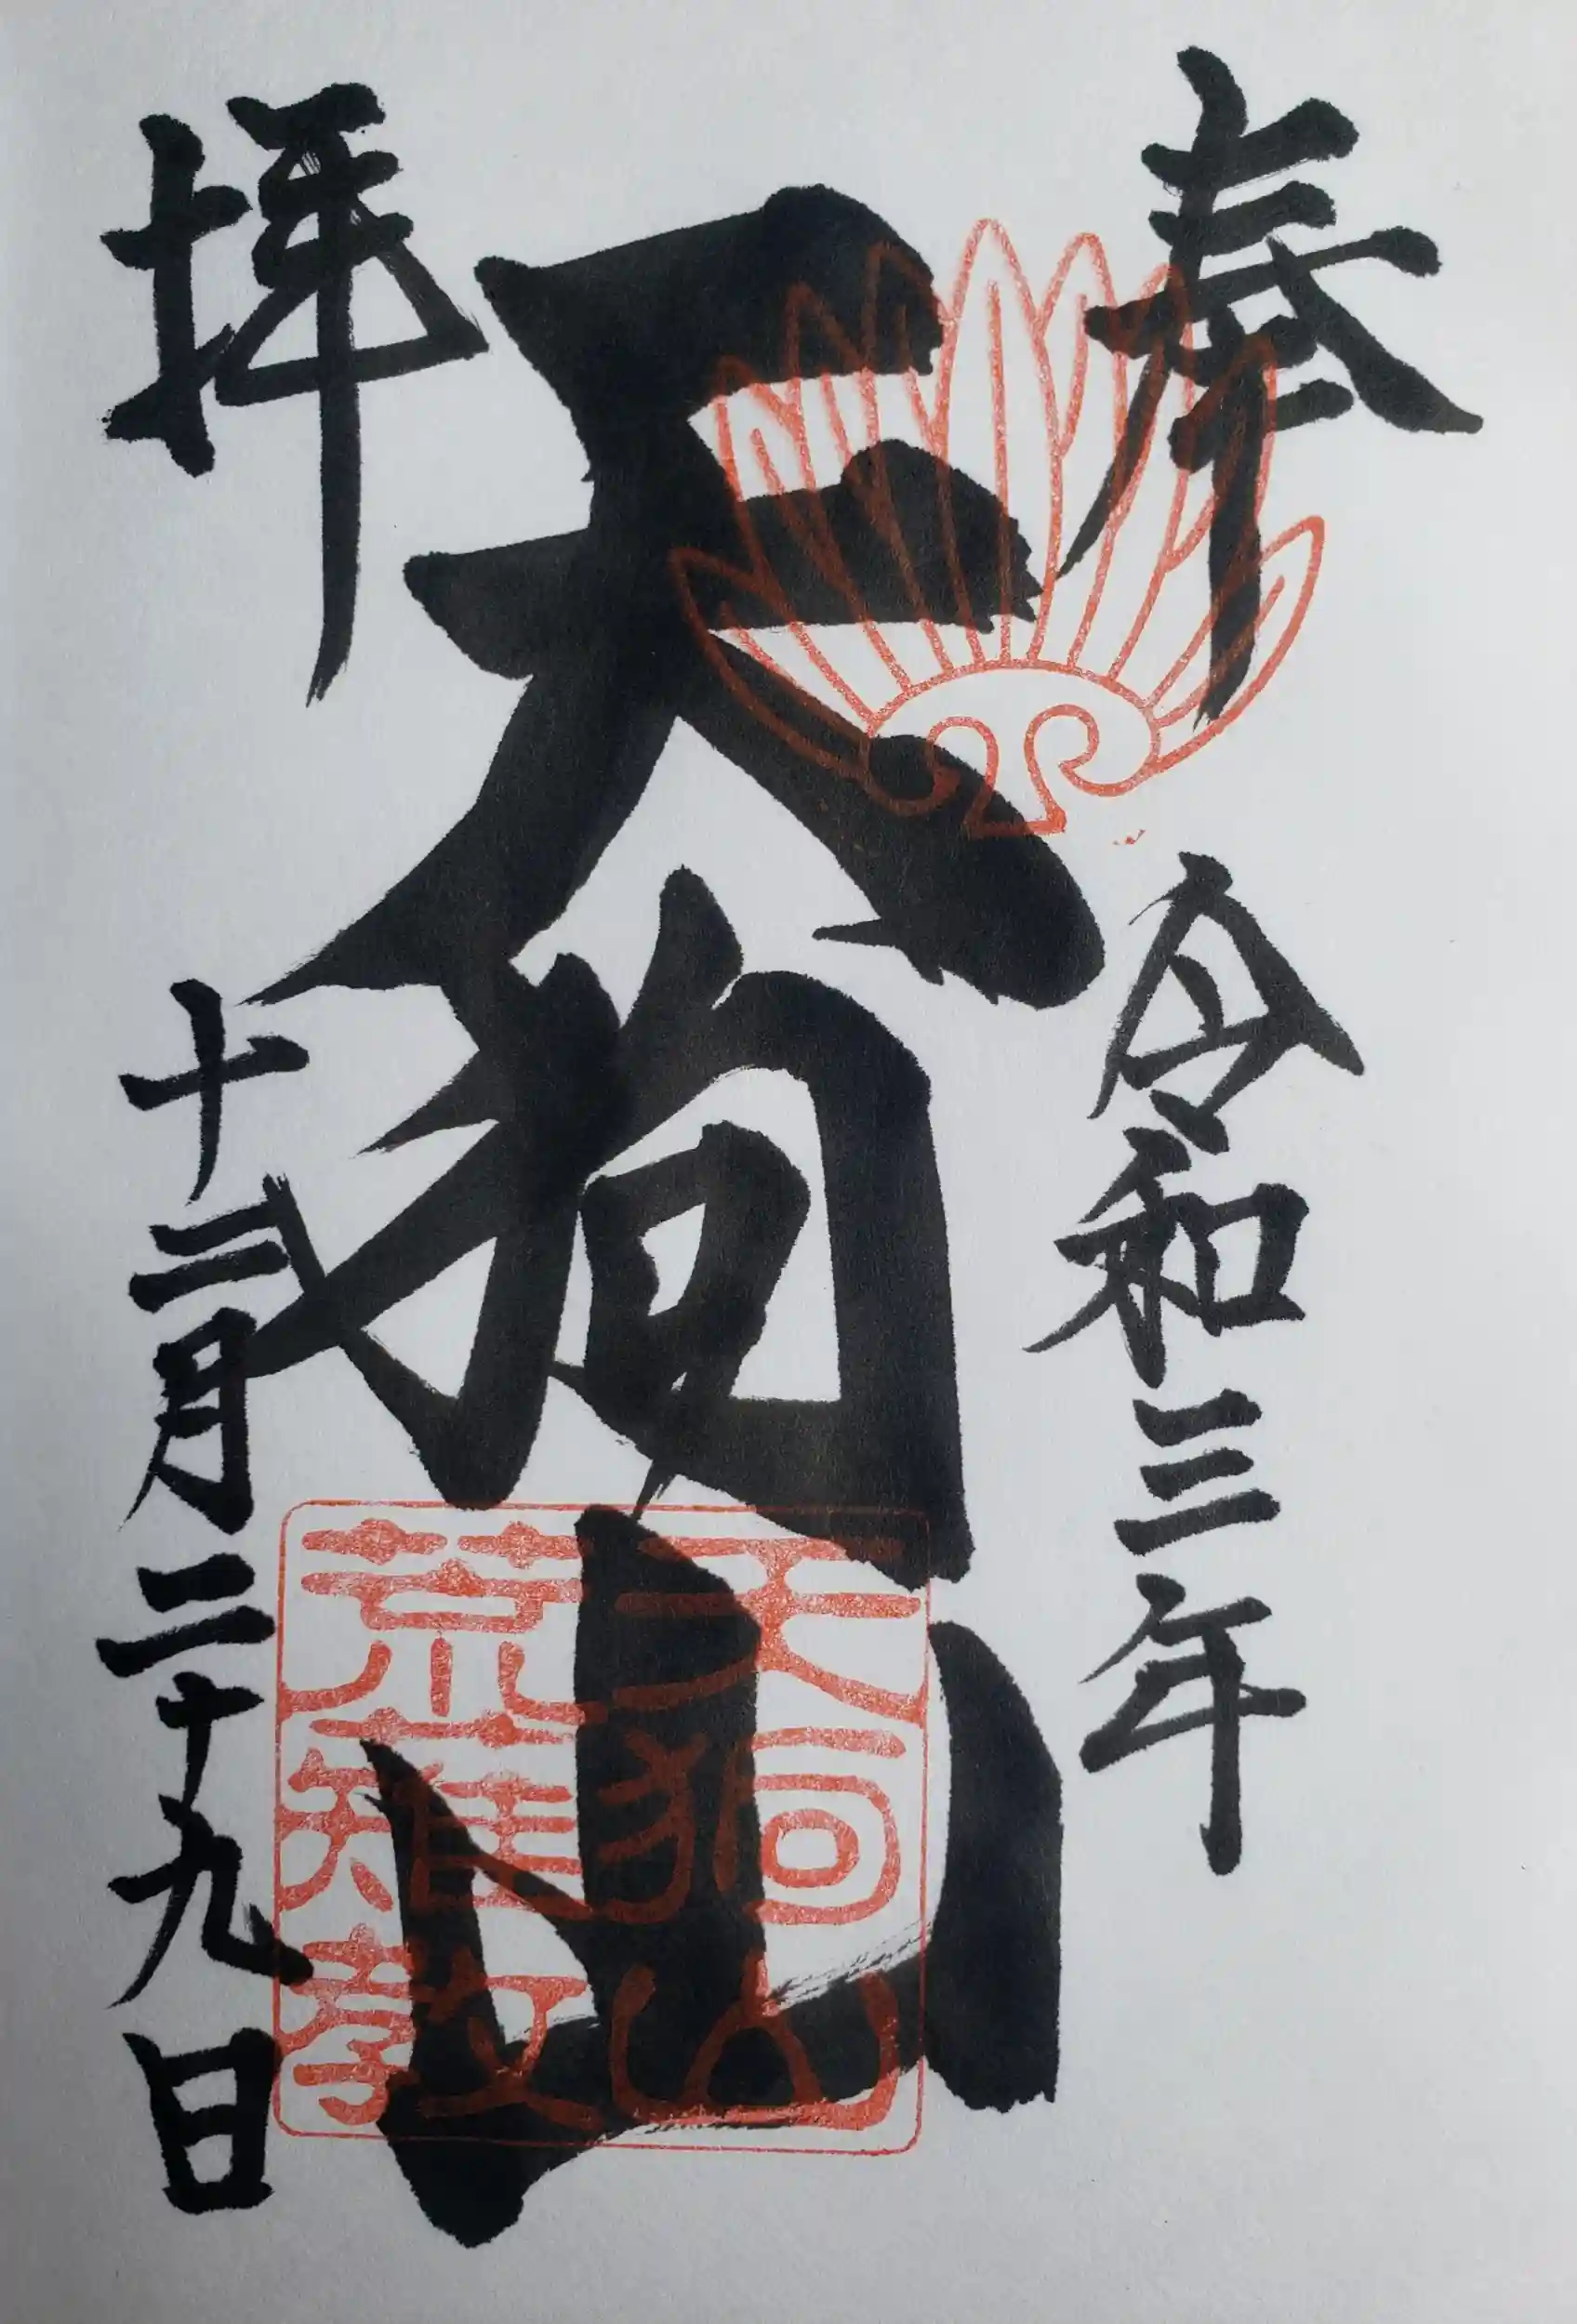 奉拝
天狗山
令和三年
十二月二十九日
天狗山
荒薙教